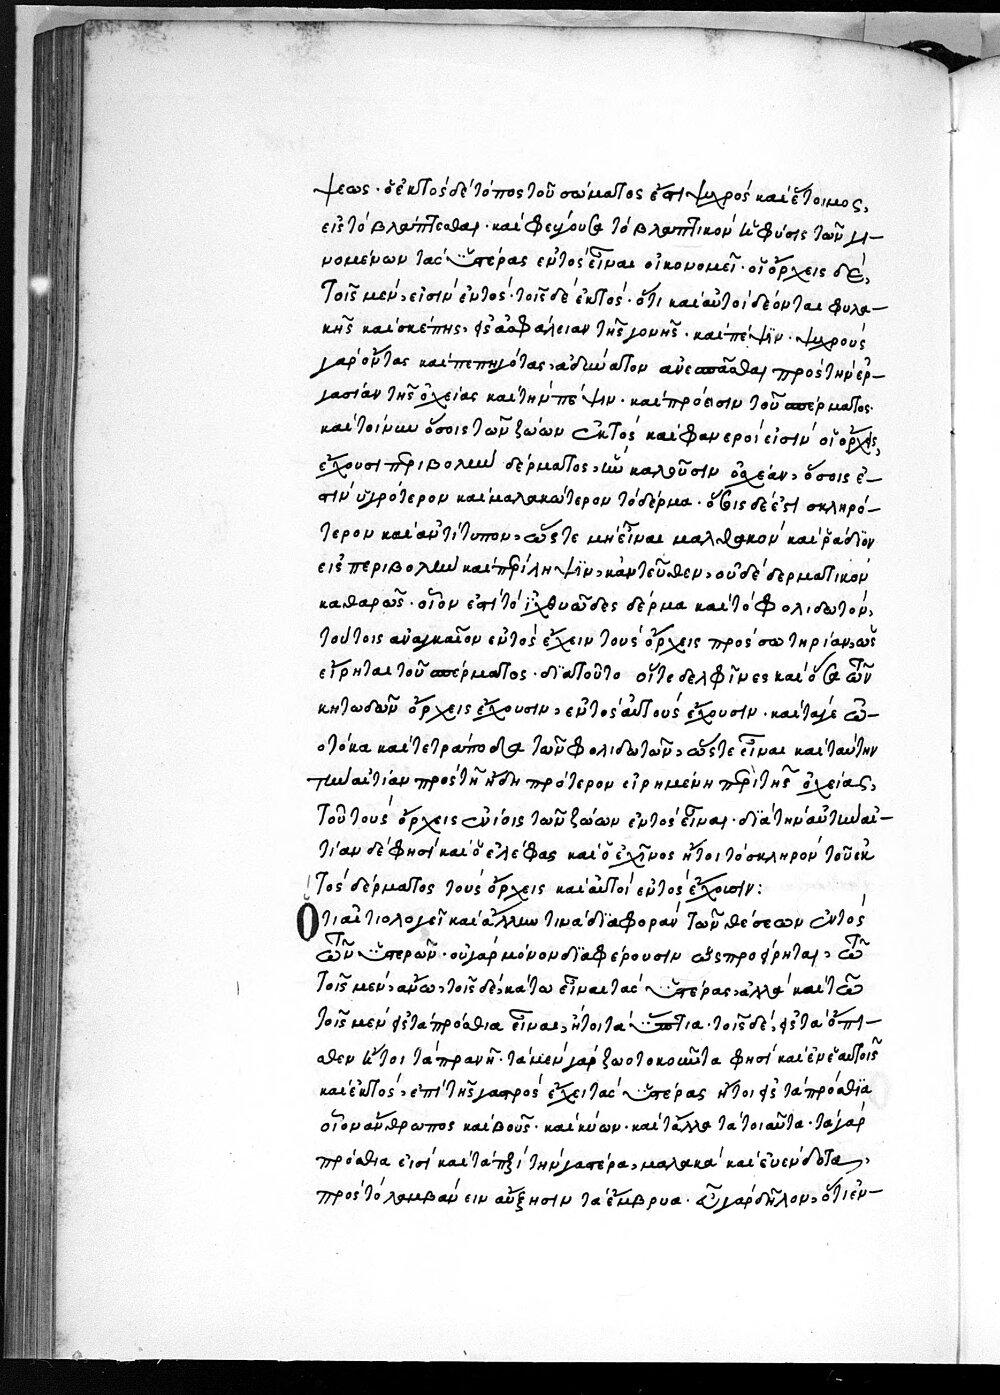 ψεως· ὁ ἐκτὸς δὲ τόπος τοῦ σώματος ἐστὶ ψυχρὸς καὶ ἕτοιμος,
εἰς τὸ βλάπτεσθαι· καὶ φεύγουσα τὸ βλαπτικὸν ἡ φύσις τῶν γι-
νομένων τὰς ὑστέρας ἐντὸς εἶναι οἰκονομεῖ· οἱ ὄρχεις δὲ,
τοῖς μὲν, εἰσὶν ἐντός· τοῖς δὲ ἐκτός· ὅτι καὶ αὐτοὶ δέονται φυλα-
κῆς καὶ σκέπης, πρὸς ἀσφάλειαν τῆς γονῆς· καὶ πέψιν· ψυχροὺς
γὰρ ὄντας καὶ πεπηγότας, ἀδύνατον ἀνεσπᾶσθαι πρὸς τὴν ἐρ-
γασίαν τῆς ὀχείας καὶ τὴν πέψιν· καὶ πρόεισιν τοῦ σπέρματος·
καὶ τοίνυν ὅσοις τῶν ζώων ἐκτὸς καὶ φανεροί εἰσιν οἱ ὄρχεις,
ἔχουσι περιβολὴν δέρματος, ἣν καλοῦσιν ὀσχέαν, ὅσοις ἐ-
στὶν ὑγρότερον καὶ μαλακώτερον τὸ δέρμα· ὅσοις δέ ἐστι σκληρό-
τερον καὶ ἀντίτυπον, ὥστε μὴ εἶναι μαλθακὸν καὶ ῥάδιον
εἰς περιβολὴν καὶ περίληψιν, κἀντεῦθεν, οὐδὲ δερματικὸν
καθαρῶς· οἷον ἐστὶ τὸ ἰχθυῶδες δέρμα καὶ τὸ φολιδωτὸν,
τούτοις ἀναγκαῖον ἐντὸς ἔχειν τοὺς ὄρχεις πρὸς σωτηρίαν, ὡς
εἴρηται τοῦ σπέρματος· διατοῦτο οἵτε δελφῖνες καὶ ὅσα τῶν
κητωδῶν ὄρχεις ἔχουσιν, ἐντὸς αὐτοὺς ἔχουσιν· καὶ τάγε ὠ-
οτόκα καὶ τετράποδα τῶν φολιδωτῶν, ὥστε εἶναι καὶ ταύτην
τὴν αἰτίαν πρὸς τῇ ἤδη πρότερον εἰρημένη περὶ τῆς ὀχείας,
τοῦ τοὺς ὄρχεις ἐνίοις τῶν ζώων ἐντὸς εἶναι· διὰ τὴν αὐτὴν αἰ-
τίαν δὲ φησὶ καὶ ὁ ἐλέφας καὶ ὁ ἐχῖνος ἤτοι τὸ σκληρὸν τοῦ ἐκ
τὸς δέρματος τοὺς ὄρχεις καὶ αὐτοὶ ἐντὸς ἔχουσιν:
Ὅτι αἰτιολογεῖ καὶ ἄλλην τινὰ διαφορὰν τῶν θέσεων ἐντὸς
τῶν ὑστερῶν· οὐ γὰρ μόνον διαφέρουσιν ὡς προείρηται,
τοῖς μὲν, ἄνω, τοῖς δὲ, κάτω εἶναι τὰς ὑστέρας, ἀλλὰ καὶ
τοῖς μὲν πρὸς τὰ πρόσθια εἶναι, ἤτοι τὰ ὕπτια· τοῖς δὲ, πρὸς τὰ ὄπι-
σθεν ἤτοι τὰ πρανῆ· τὰ μὲν γὰρ ζωοτοκοῦντα φησὶ καὶ ἐν ἑαυτοῖς
καὶ ἐκτὸς, ἐπὶ τῆς γαστρὸς ἔχει τὰς ὑστέρας ἤτοι πρὸς τὰ πρόσθια
οἷον ἄνθρωπος καὶ βοῦς· καὶ κύων· καὶ τἄλλα τὰ τοιαῦτα· τὰ γὰρ
πρόσθια εἰσὶ καὶ τὰ περὶ τὴν γαστέρα, μαλακὰ καὶ εὐένδοτα,
πρὸς τὸ λαμβάνειν αὔξησιν τὰ ἔμβρυα· εὖ γὰρ δῆλον, ὅτι ἐν-